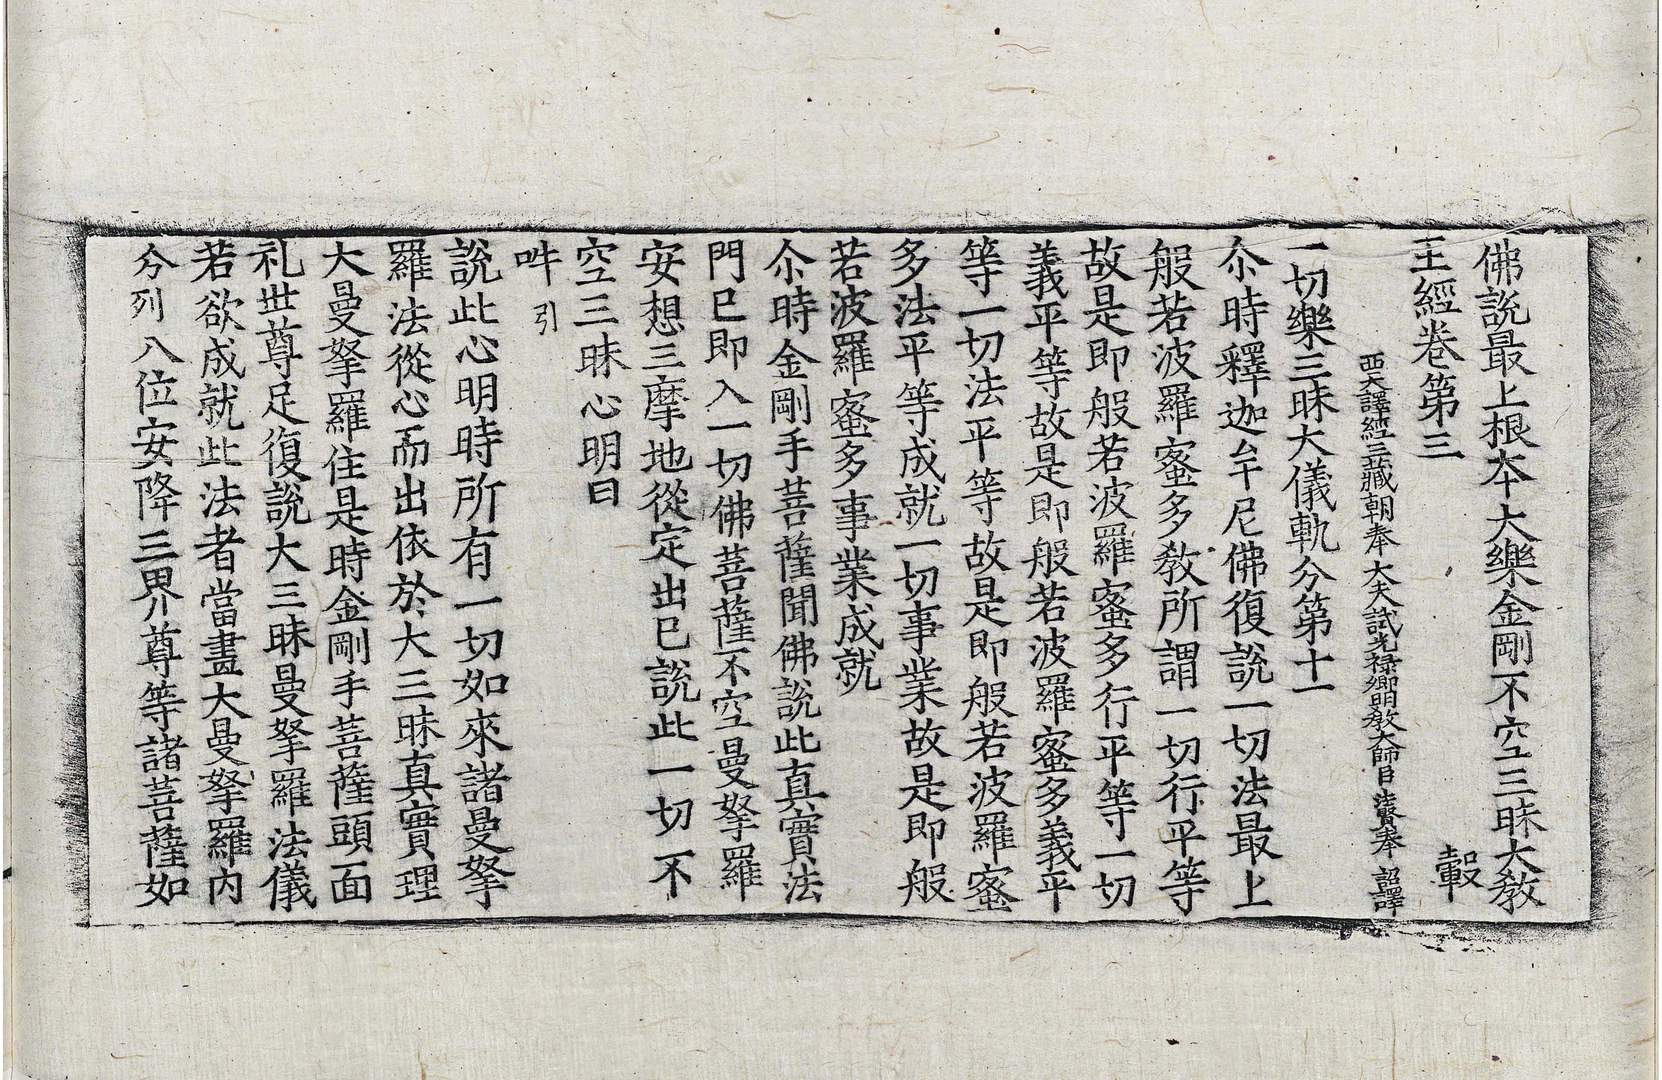 佛說最上根本大樂金剛不空三昧大敎
王經卷第三 轂
西天譯經三藏朝奉大夫試光禄卿明敎大師臣法賢奉 詔譯
一切樂三昧大儀軌分第十一
尒時釋迦牟尼佛復說一切法最上
般若波羅蜜多敎所謂一切行平等
故是即般若波羅蜜多行平等一切
義平等故是即般若波羅蜜多義平
等一切法平等故是即般若波羅蜜
多法平等成就一切事業故是即般
若波羅蜜多事業成就
尒時金剛手菩薩聞佛說此真實法
門已即入一切佛菩薩不空曼拏羅
安想三摩地從定出已說此一切不
空三昧心明曰
吽引
說此心明時所有一切如來諸曼拏
羅法從心而出依於大三昧真實理
大曼拏羅住是時金剛手菩薩頭面
礼世尊足復說大三昧曼拏羅法儀
若欲成就此法者當畫大曼拏羅內
分列八位安降三界尊等諸菩薩如